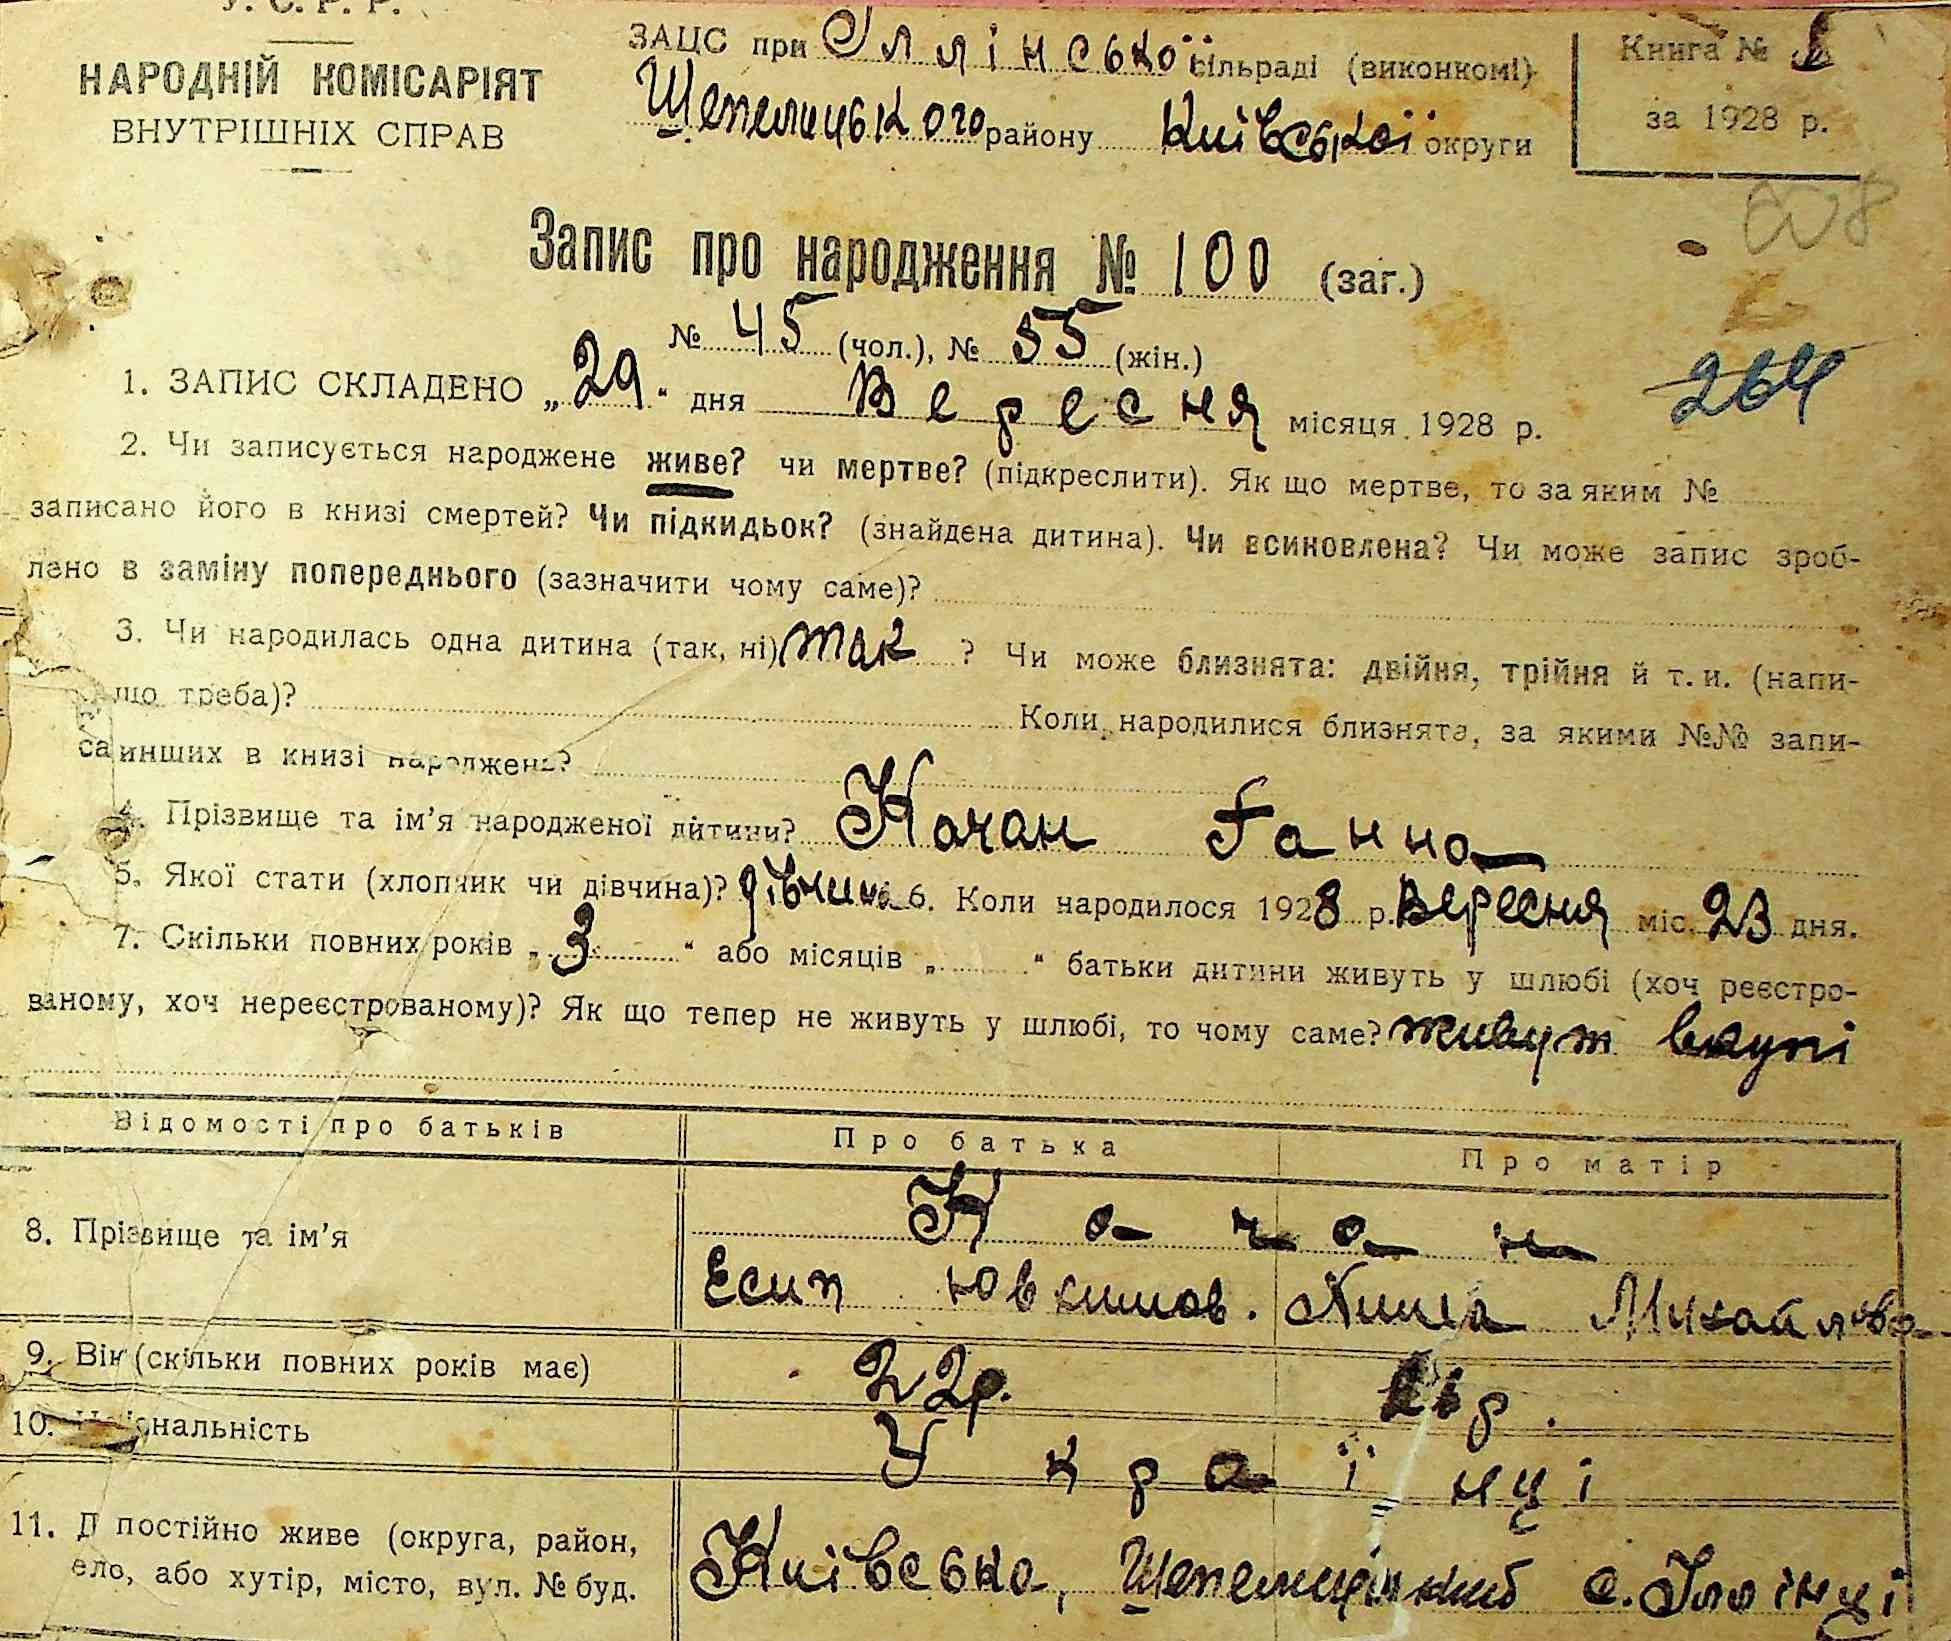 У. С. Р. Р.
НАРОДНІЙ КОМІСАРІЯТ
ВНУТРІШНІХ СПРАВ
ЗАЦС при Іллінської сільраді (виконкомі)
Шепелицького району Київської округи
Книга №
за 1928 р.
Запис про народження № 100 (заг.)
№ 45 (чол.), № 55 (жін.)
264
1. ЗАПИС СКЛАДЕНО „29“ дня Вересня місяця 1928 р.
2. Чи записується народжене живе? чи мертве? (підкреслити). Як що мертве, то за яким №
записано його в книзі смертей? Чи підкидьок? (знайдена дитина). Чи всиновлена? Чи може запис зроб-
лено в заміну попереднього (зазначити чому саме)?
3. Чи народилась одна дитина (так, ні) так ? Чи може близнята: двійня, трійня й т. и. (напи-
що треба)? Коли народилися близнята, за якими №№ запи-
са инших в книзі народжень?
4. Прізвище та ім’я народженої дитини? Качан Ганна
5. Якої стати (хлопчик чи дівчина)? дівчина 6. Коли народилося 1928 р. Вересня міс. 23 дня.
7. Скільки повних років „3“ або місяців „ “ батьки дитини живуть у шлюбі (хоч реєстро-
ваному, хоч нереєстрованому)? Як що тепер не живуть у шлюбі, то чому саме? живут вкупі
Відомості про батьків Про батька Про матір
8. Прізвище та ім’я Качан
Есип Ювхимов. Анна Михайлова
9. Вік (скільки повних років має) 22р. р.
10. Національність Українці
11. Д постійно живе (округа, район, Київська, Шепелицький с. Іллінці
ело, або хутір, місто, вул. № буд.